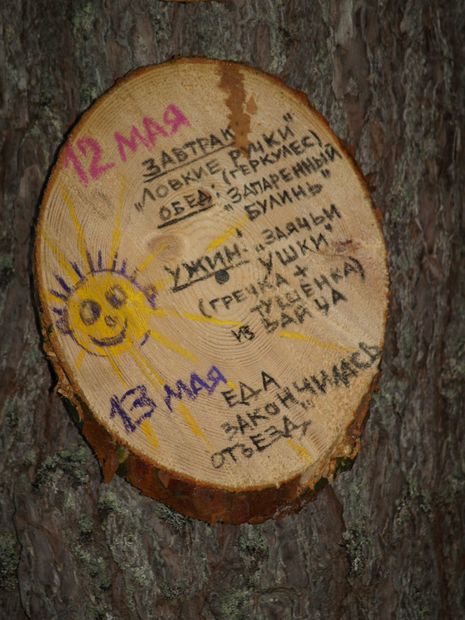 12 МАЯ
ЗАВТРАК
"ЛОВКИЕ РУЧКИ"
(ГЕРКУЛЕС)
ОБЕД: "ЗАПАРЕННЫЙ
БУЛИНЬ"
УЖИН: "ЗАЯЧЬИ
УШКИ"
(ГРЕЧКА +
ТУШЁНКА)
ИЗ ЗАЙЦА
13 МАЯ
ЕДА
ЗАКОНЧИЛАСЬ
ОТЪЕЗД